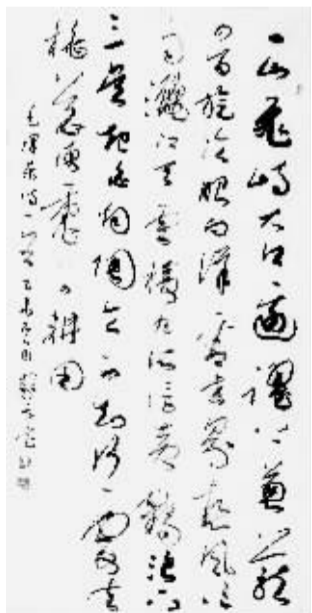 一山飛峙大江邊躍上葱蘢
四百旋冷眼向洋看世界熱風吹
雨灑江天雲橫九派浮黄鶴浪下
三吴起白烟陶令不知何處去
桃花源裏可耕田
毛澤東詩